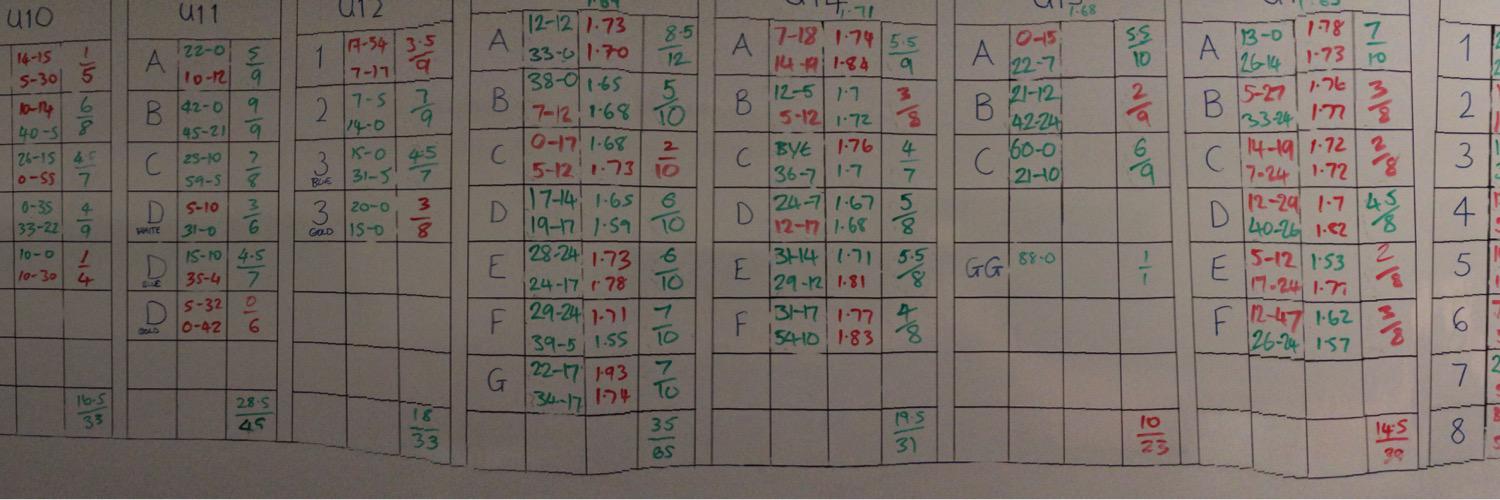 U10
14-15 1
5-30 5
10-14 6
40-5 8
26-15 4.5
0-55 7
0-35 4
33-22 9
10-0 1
10-30 4
16.5
33
U11
A 22-0 5
10-12 9
B 42-0 9
45-21 9
C 25-10 7
59-5 8
D 5-10 3
WHITE 31-0 6
D 15-10 4.5
BLUE 35-4 7
D 5-32 0
GOLD 0-42 6
28.5
45
U12
1 17-54 3.5
7-17 9
2 7-5 7
14-0 9
3 15-0 4.5
BLUE 31-5 7
3 20-0 3
GOLD 15-0 8
18
33
A 12-12 1.73 8.5
33-0 1.70 12
B 38-0 1.65 5
7-12 1.68 10
C 0-17 1.68 2
5-12 1.73 10
D 17-14 1.65 6
19-17 1.59 10
E 28-24 1.73 6
24-17 1.78 10
F 29-24 1.71 7
39-5 1.55 10
G 22-17 1.93 7
34-17 1.74 10
35
65
1.71
A 7-18 1.74 5.5
14-19 1.84 9
B 12-5 1.7 3
5-12 1.72 8
C BYE 1.76 4
36-7 1.7 7
D 24-7 1.67 5
12-17 1.68 8
E 31-14 1.71 5.5
29-12 1.81 8
F 31-17 1.77 4
54-10 1.83 8
19.5
31
1.68
A 0-15 5.5
22-7 10
B 21-12 2
42-24 9
C 60-0 6
21-10 9
GG 88-0 1
1
10
23
A 13-0 1.78 7
26-14 1.73 10
B 5-27 1.76 3
33-24 1.77 8
C 14-19 1.72 2
7-24 1.72 8
D 12-29 1.7 4.5
40-26 1.82 8
E 5-12 1.53 2
17-24 1.77 8
F 12-47 1.62 3
26-24 1.57 8
14.5
39
1
2
3
4
5
6
7
8